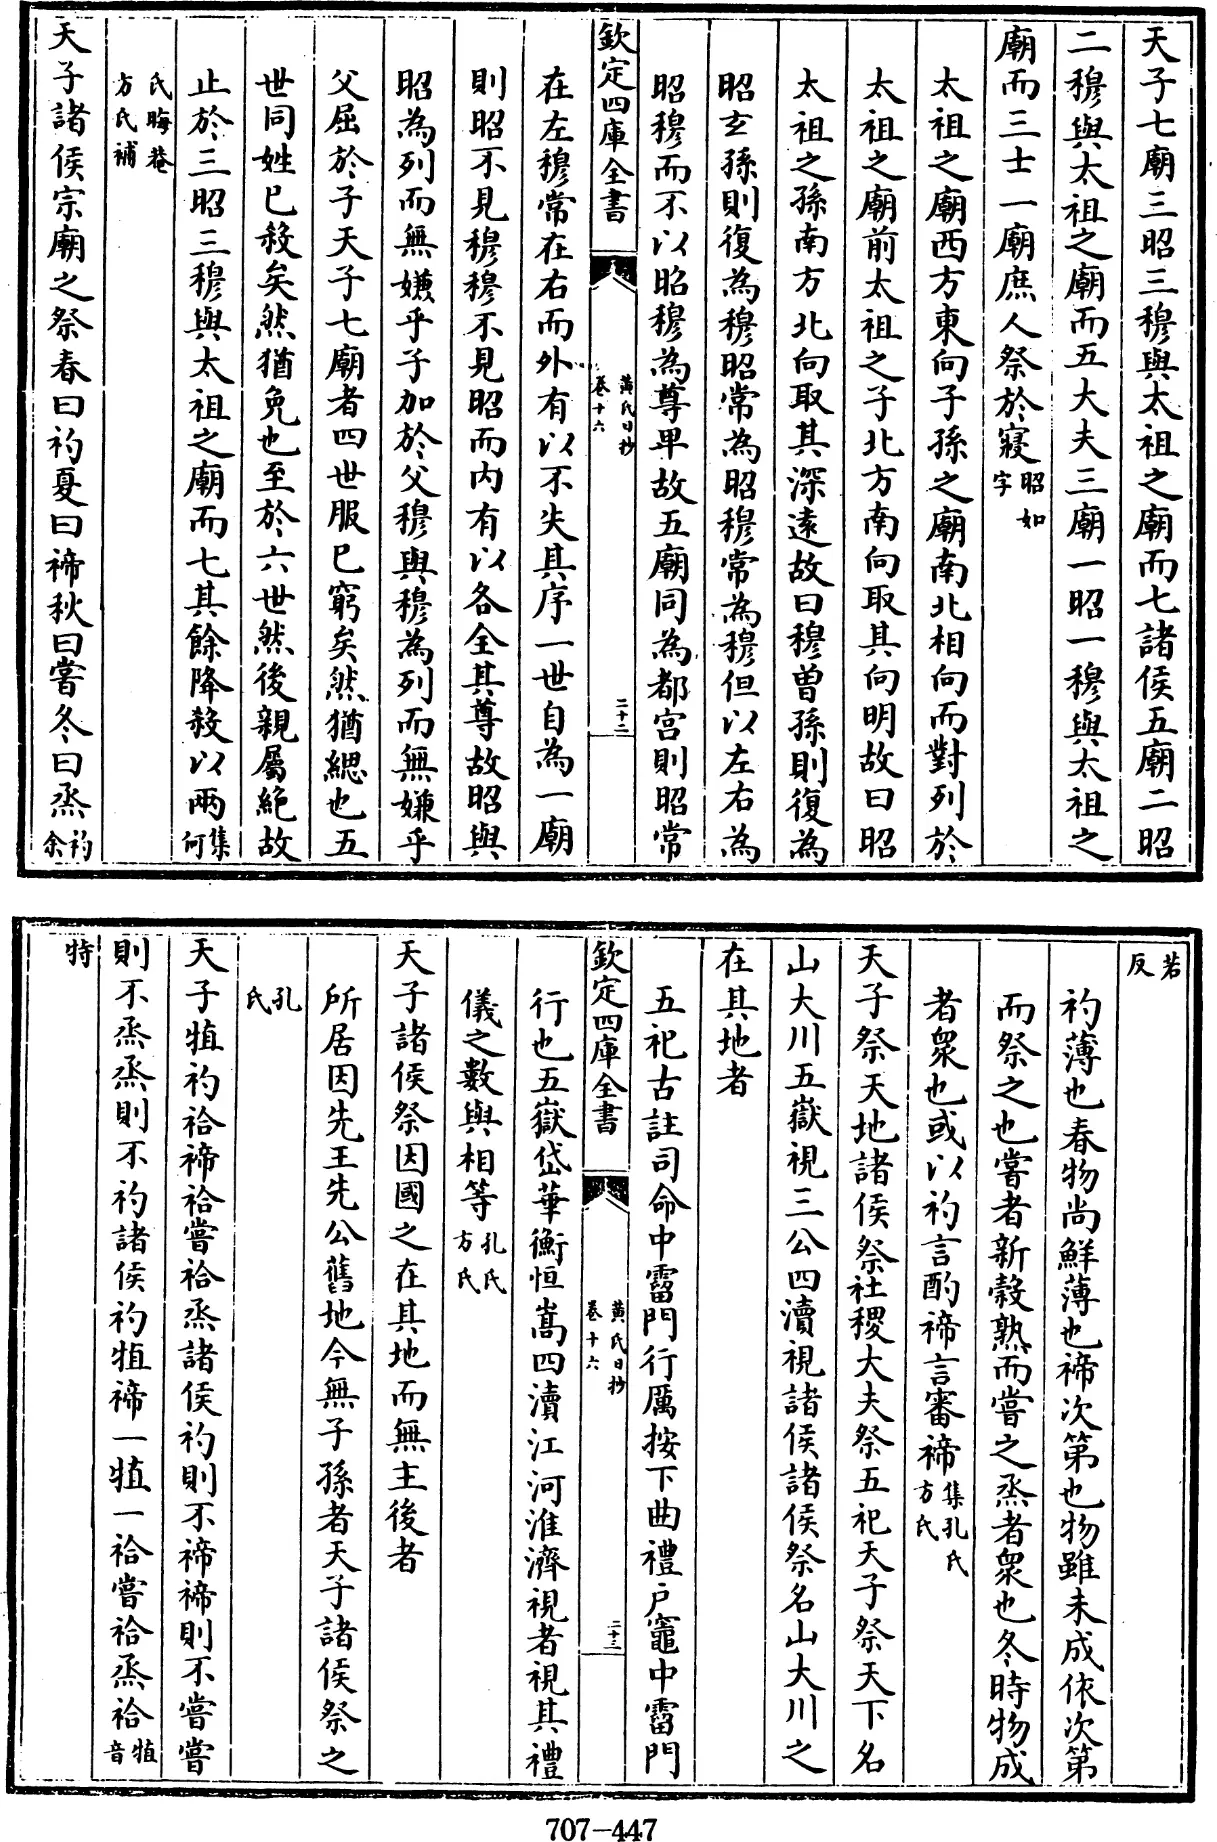 天子七廟三昭三穆與太祖之廟而七諸侯五廟二昭
二穆與太祖之廟而五大夫三廟一昭一穆與太祖之
廟而三士一廟庶人祭於寢昭如字
太祖之廟西方東向子孫之廟南北相向而對列於
太祖之廟前太祖之子北方南向取其向明故曰昭
太祖之孫南方北向取其深遠故曰穆曽孫則復為
昭玄孫則復為穆昭常為昭穆常為穆但以左右為
昭穆而不以昭穆為尊卑故五廟同為都宫則昭常
欽定四庫全書
黄氏日抄
卷十六
二十二
在左穆常在右而外有以不失其序一世自為一廟
則昭不見穆穆不見昭而内有以各全其尊故昭與
昭為列而無嫌乎子加於父穆與穆為列而無嫌乎
父屈於子天子七廟者四世服已窮矣然猶緦也五
世同姓已殺矣然猶免也至於六世然後親屬絶故
止於三昭三穆與太祖之廟而七其餘降殺以兩集何
氏晦菴
方氏補
天子諸侯宗廟之祭春曰礿夏曰禘秋曰嘗冬曰烝礿余
若反
礿薄也春物尚鮮薄也禘次第也物雖未成依次第
而祭之也嘗者新穀熟而嘗之烝者衆也冬時物成
者衆也或以礿言酌禘言審禘集孔氏方氏
天子祭天地諸侯祭社稷大夫祭五祀天子祭天下名
山大川五嶽視三公四瀆視諸侯諸侯祭名山大川之
在其地者
五祀古註司命中霤門行厲按下曲禮户竈中霤門
欽定四庫全書
黄氏日抄
卷十六
二十三
行也五嶽岱華衡恒嵩四瀆江河淮濟視者視其禮
儀之數與相等孔氏方氏
天子諸侯祭因國之在其地而無主後者
所居因先王先公舊地今無子孫者天子諸侯祭之
孔氏
天子犆礿祫禘祫嘗祫烝諸侯礿則不禘禘則不嘗嘗
則不烝烝則不礿諸侯礿犆禘一犆一祫嘗祫烝祫犆音
特
707-447